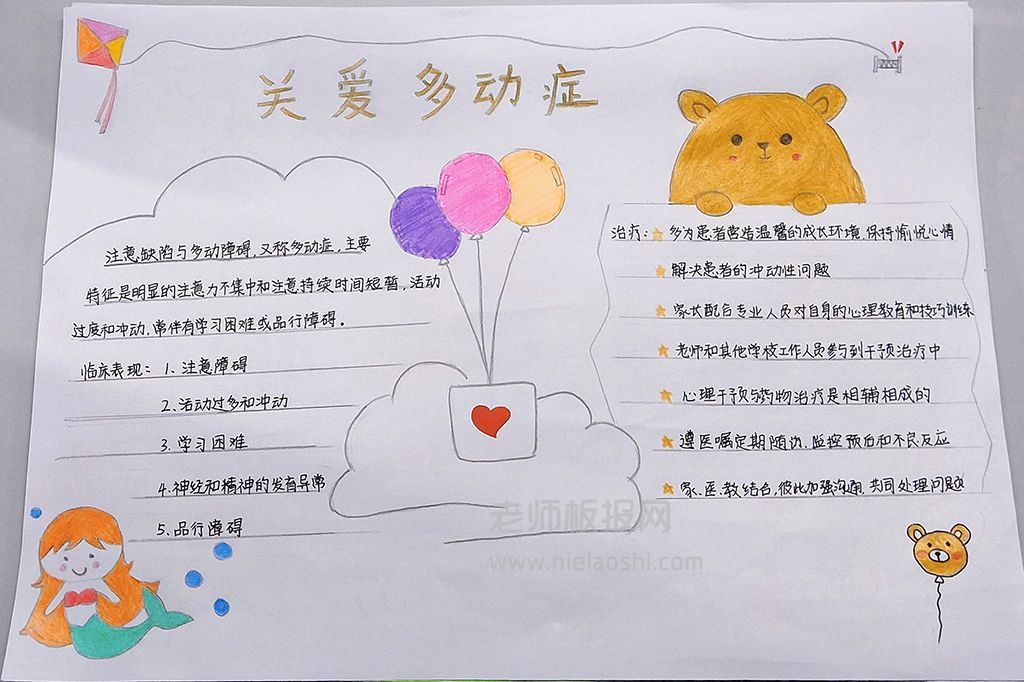 关爱多动症
注意缺陷与多动障碍,又称多动症,主要
特征是明显的注意力不集中和注意持续时间短暂,活动
过度和冲动,常伴有学习困难或品行障碍。
临床表现: 1、注意障碍
2、活动过多和冲动
3、学习困难
4、神经和精神的发育异常
5、品行障碍
治疗: 多为患者营造温馨的成长环境,保持愉悦心情
解决患者的冲动性问题
家长配合专业人员对自身的心理教育和技巧训练
老师和其他学校工作人员参与到干预治疗中
心理干预与药物治疗是相辅相成的
遵医嘱定期随访,监控预后和不良反应
家、医、教结合,彼此加强沟通,共同处理问题
老师板报网
www.nielaoshi.com